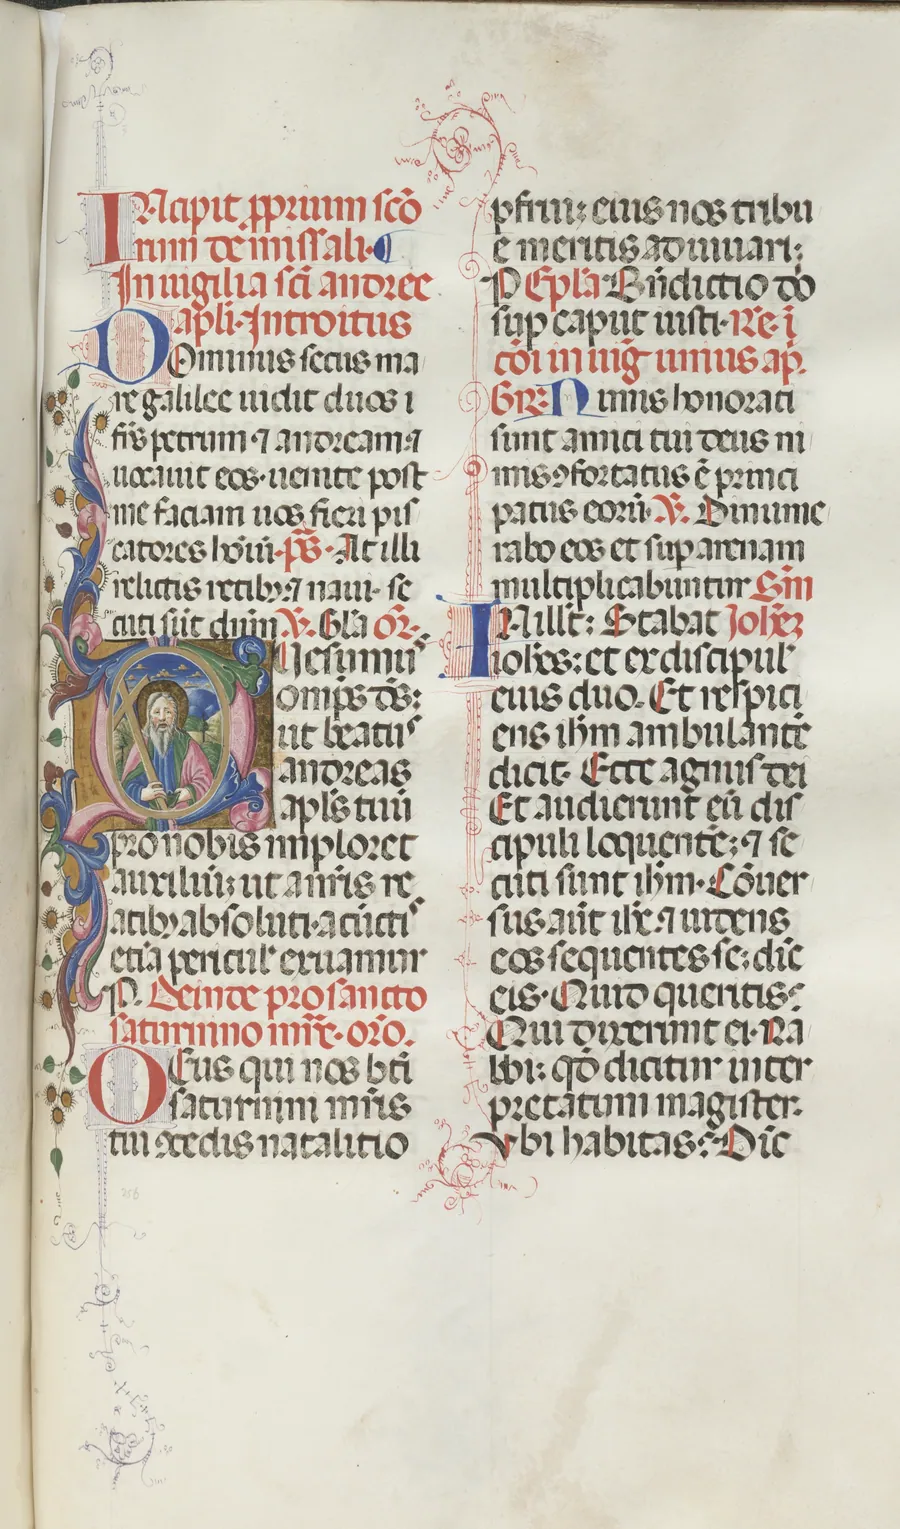 INcipit ꝓprium scõ
rum de missali.
In uigilia sc̃i andree
apl̃i. Introitus
DOminus secus ma
re galilee uidit duos
fr̃es petrum ⁊ andream. ⁊
uocauit eos. uenite post
me faciam uos fieri pis
catores hoĩum. p̃s. At illi
relictis retibꝫ ⁊ naui. se
cuti sũt dñm. ℣. Gl̃a or̃.
Quesumus
omp̃s ds̃:
ut beatus
andreas
apl̃s tuus
pro nobis imploret
auxiliũ; ut a nr̃is re
atibꝫ absoluti. a cũctis
etiã pericul' exuamur
P. Deinde pro sancto
saturnino mr̃e. or̃o.
DEus qui nos bt̃i
saturnini mr̃is
tui ꝯcedis natalitio
pfrui; eius nos tribu
e meritis adiuuari:
P Epl̃a Bñdictio do
sup caput iusti. Re. ĩ
cõi in uig̃ unius ap̃.
Gr̃. Nimis honorati
sunt amici tui deus ni
mis ꝯfortatus ẽ princi
patus eorũ. ℣. Dinume
rabo eos et sup arenam
multiplicabuntur Sm̃
IN ill̃t: Stabat Joheꝫ
ioh̃es: et ex discipul'
eius duo. Et respici
ens ih̃m ambulantẽ
dicit. Ecce agnus dei
Et audierunt eũ dis
cipuli loquentẽ; ⁊ se
cuti sunt ih̃m. Cõuer
sus aũt ih̃s ⁊ uidens
eos sequentes se; dic̃
eis. Quid queritis?
Qui dixerunt ei. Ra
bbi: qd̃ dicitur inter
pretatum magister.
Vbi habitas? Dic̃